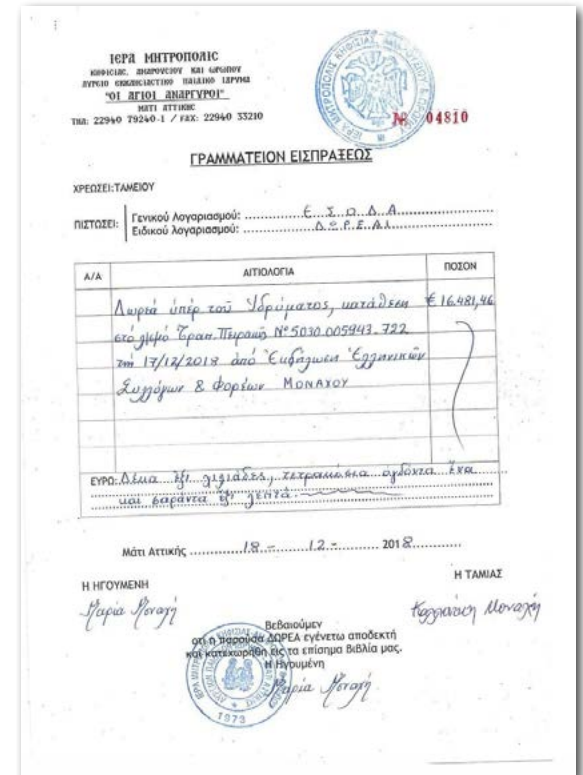 ΙΕΡΑ ΜΗΤΡΟΠΟΛΙΣ
ΚΗΦΙΣΙΑΣ, ΑΜΑΡΟΥΣΙΟΥ ΚΑΙ ΩΡΩΠΟΥ
ΛΥΡΕΙΟ ΕΚΚΛΗΣΙΑΣΤΙΚΟ ΠΑΙΔΙΚΟ ΙΔΡΥΜΑ
"ΟΙ ΑΓΙΟΙ ΑΝΑΡΓΥΡΟΙ"
ΜΑΤΙ ΑΤΤΙΚΗΣ
ΤΗΛ: 22940 79240-1 / FAX: 22940 33210
№ 04810
ΓΡΑΜΜΑΤΕΙΟΝ ΕΙΣΠΡΑΞΕΩΣ
ΧΡΕΩΣΕΙ: ΤΑΜΕΙΟΥ
ΠΙΣΤΩΣΕΙ: Γενικού Λογαριασμού: ΕΣΟΔΑ
Ειδικού λογαριασμού: ΔΩΡΕΑΙ
Α/Α ΑΙΤΙΟΛΟΓΙΑ ΠΟΣΟΝ
Δωρεά ὑπέρ τοῦ Ἱδρύματος, κατάθεση € 16.481,46
στό λ/μό Τραπ. Πειραιῶς Nº 5030.005943.722
τήν 17/12/2018 ἀπό Ἐκδήλωση Ἑλληνικῶν
Συλλόγων & Φορέων ΜΟΝΑΧΟΥ
ΕΥΡΩ: Δέκα ἕξι χιλιάδες, τετρακόσια ὀγδόντα ἕνα
και σαράντα ἕξι λεπτά.
Μάτι Αττικής 18 - 12 - 2018
Η ΗΓΟΥΜΕΝΗ Η ΤΑΜΙΑΣ
Μαρία Μοναχή Μοναχή
Βεβαιούμεν
οτι η παρούσα ΔΩΡΕΑ εγένετω αποδεκτή
και κατεχωρήθη εις τα επίσημα βιβλία μας.
Η Ηγουμένη
Μαρία Μοναχή
1973